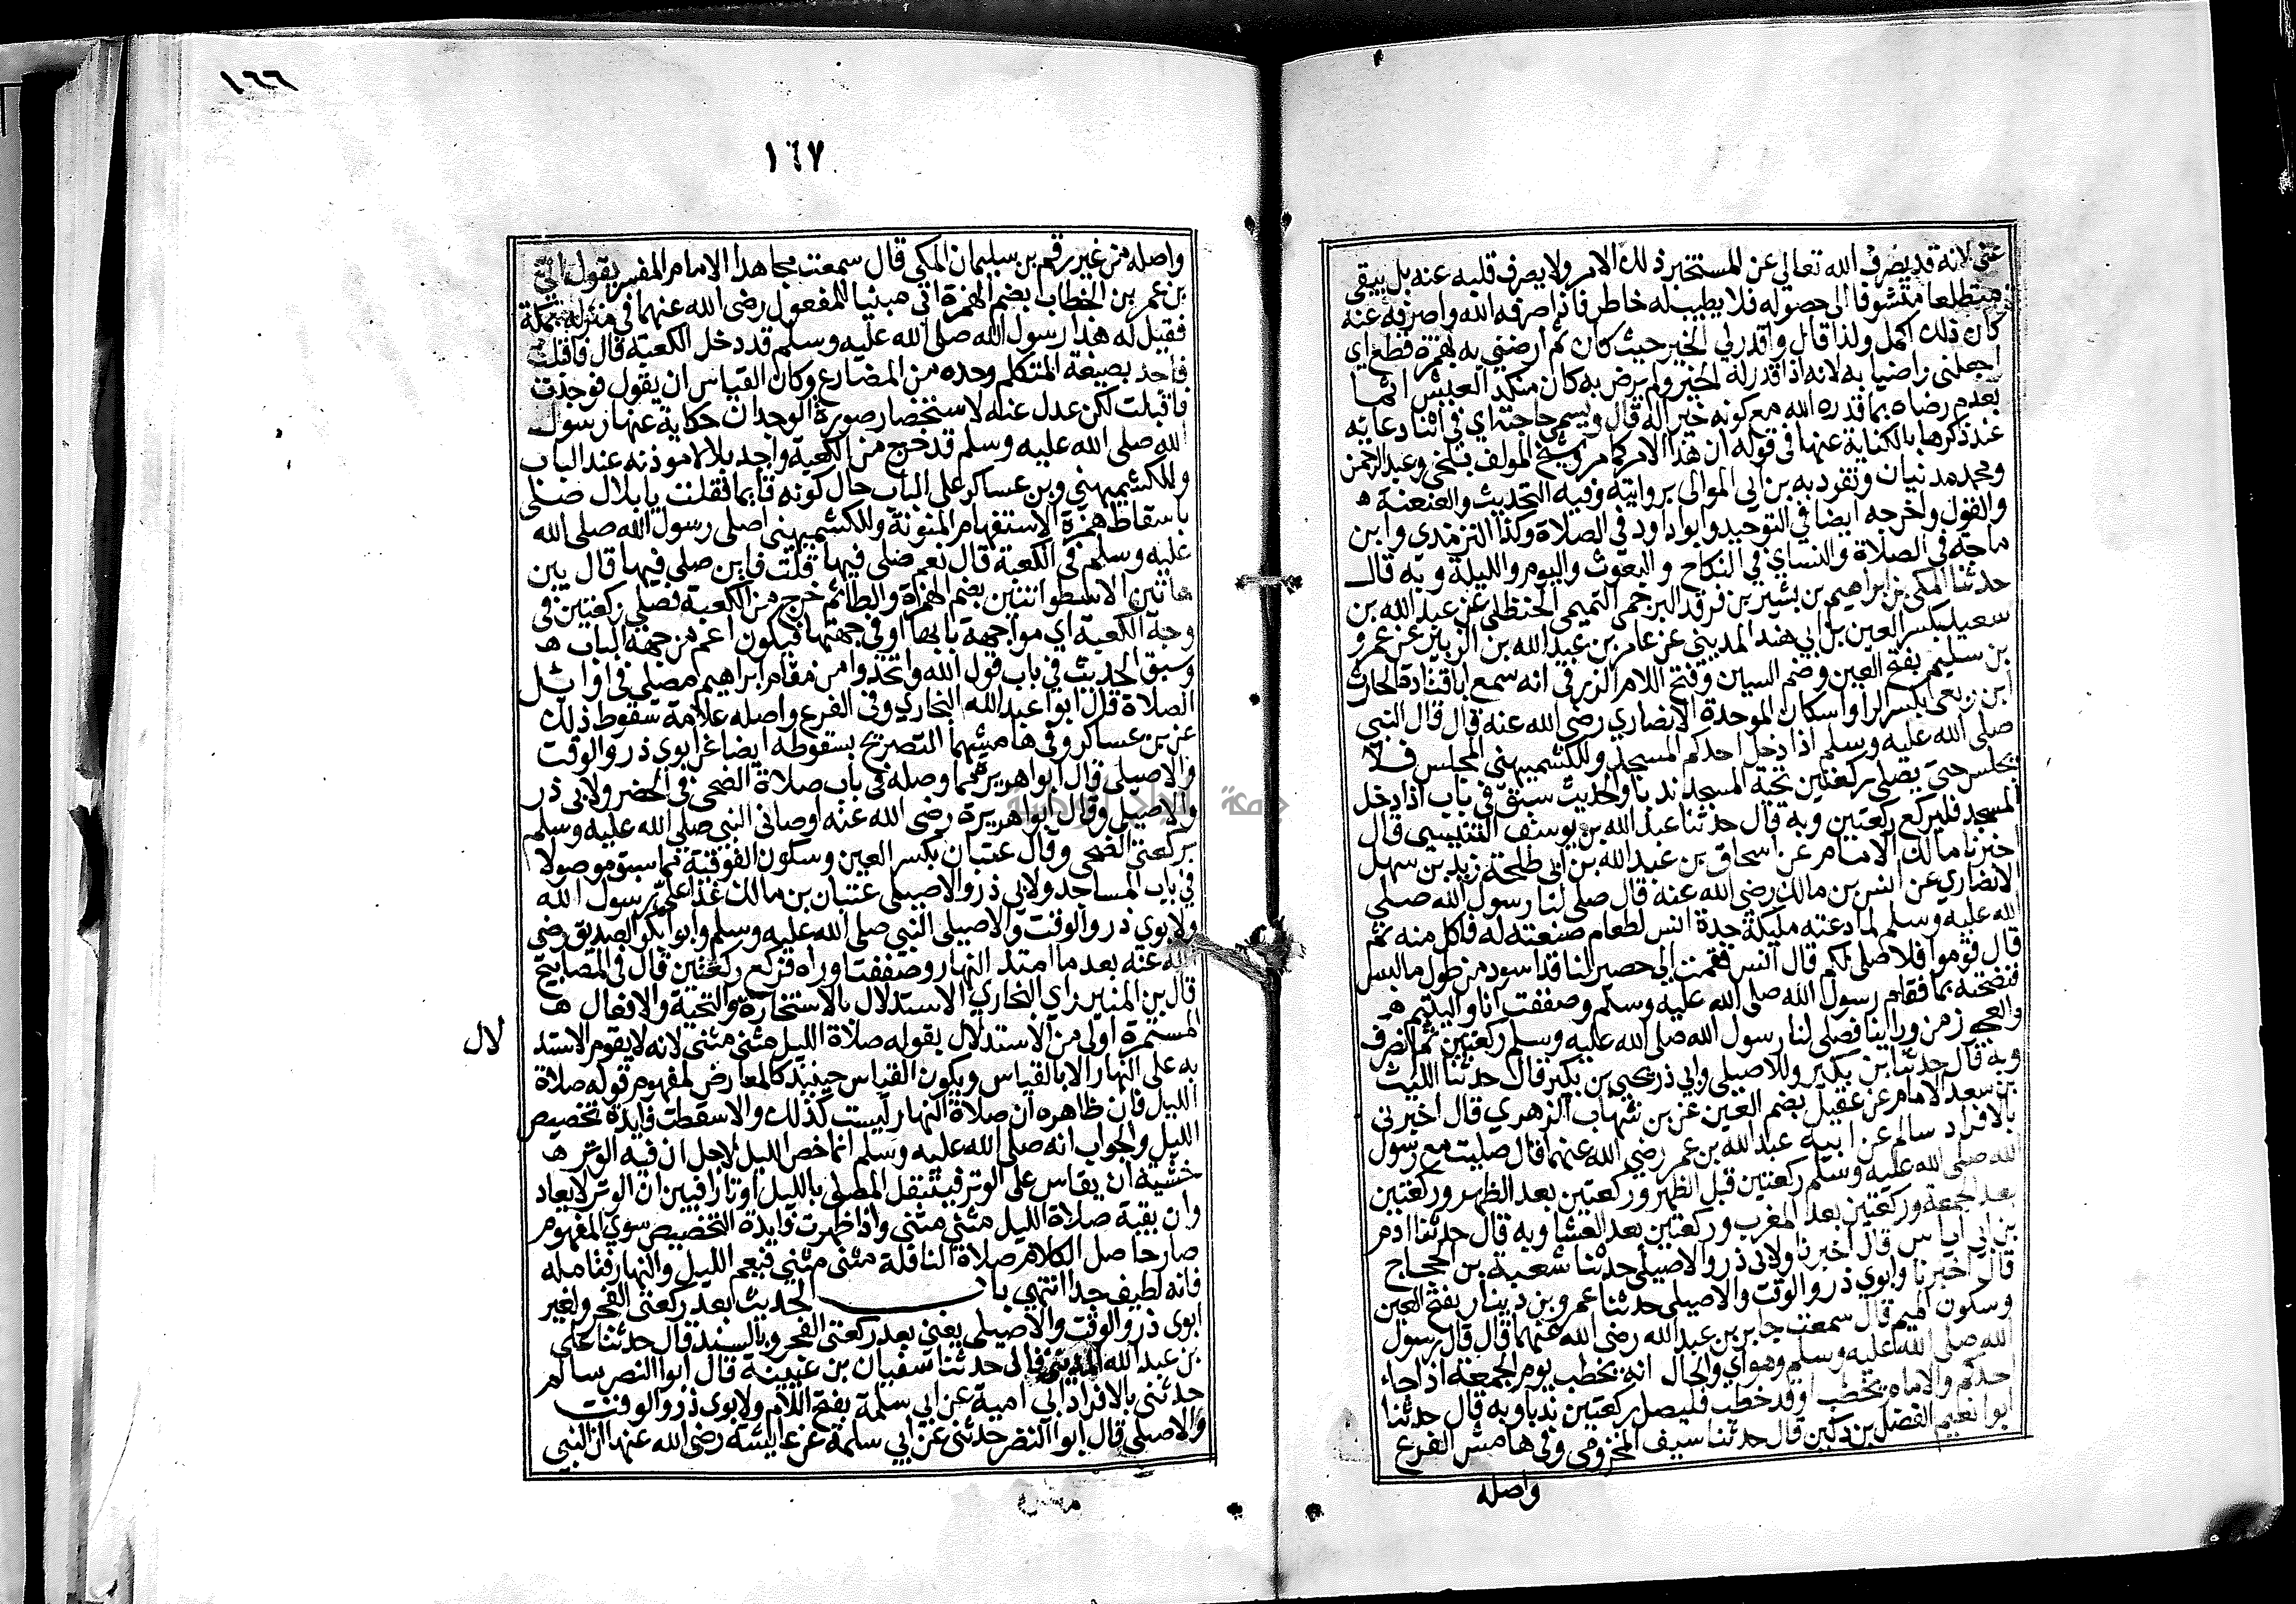 عني لانه قد يصرف الله تعالى عن المستخير ذلك الامر ولا يصرف قلبه عنه بل يبقى
متطلعا متشوفا الى حصوله فلا يطيب له خاطر فاذا صرفه الله واصرفه عنه
كان ذلك اكمل ولذا قال واقدر لي الخير حيث كان ثم ارضني به بهمزة قطع اي
اجعلني راضيا به لانه اذا قدر له الخير ولم يرض به كان منكد العيش اثما
بعدم رضاه بما قدره الله مع كونه خيرا له قال ويسمي حاجته اي في اثنا دعايه
عند ذكرها بالكناية عنها في قوله ان هذا الامر كما مر وشيخ المولف بلخي وعبد الرحمن
ومحمد مدنيان وتفرد به بن ابي الموالي بروايته وفيه التحديث والعنعنة ه
والقول واخرجه ايضا في التوحيد وابو داود في الصلاة وكذا الترمذي وابن
ماجه في الصلاة والنساي في النكاح والبعوث واليوم والليلة وبه قال
حدثنا المكي بن ابراهيم بن بشير بن فرقد البرجمي التميمي الحنظلي عن عبد الله بن
سعيد بكسر العين بن ابي هند المديني عن عامر بن عبد الله بن الزبير عن عمرو
بن سليم بفتح العين وضم السين وفتح اللام الزرقي انه سمع ابا قتادة الحارث
ابن ربعي بكسر الرا واسكان الموحدة الانصاري رضي الله عنه قال قال النبي
صلى الله عليه وسلم اذا دخل احدكم المسجد وللكشميهني المجلس فلا
يجلس حتي يصلي ركعتين تحية المسجد ندبا والحديث سبق في باب اذا دخل
المسجد فليركع ركعتين وبه قال حدثنا عبد الله بن يوسف التنيسي قال
اخبرنا مالك الامام عن اسحاق بن عبد الله بن ابي طلحة زيد بن سهل
الانصاري عن انس بن مالك رضي الله عنه قال صلى لنا رسول الله صلى
الله عليه وسلم لما دعته مليكة جدة انس لطعام صنعته له فاكل منه ثم
قال قوموا فلاصلي لكم قال انس فقمت الى حصير لنا قد اسود من طول ما لبس
فنضحته بما فقام رسول الله صلى الله عليه وسلم وصففت انا واليتيم ه
والعجوز من ورائنا فصلى لنا رسول الله صلى الله عليه وسلم ركعتين ثم انصرف
وبه قال حدثنا بن بكير وللاصيلي وابي ذر يحيى بن بكير قال حدثنا الليث
بن سعد الامام عن عقيل بضم العين عن بن شهاب الزهري قال اخبرني
بالافراد سالم عن ابيه عبد الله بن عمر رضي الله عنهما قال صليت مع رسول
الله صلى الله عليه وسلم ركعتين قبل الظهر وركعتين بعد الظهر وركعتين
بعد الجمعة وركعتين بعد المغرب وركعتين بعد العشا وبه قال حدثنا ادم
بن ابي اياس قال اخبرنا ولابي ذر والاصيلي حدثنا شعبة بن الحجاج
قال اخبرنا وابوي ذر والوقت والاصيلي حدثنا عمرو بن دينار بفتح العين
وسكون الميم قال سمعت جابر بن عبد الله رضي الله عنهما قال قال رسول
الله صلى الله عليه وسلم وهو اي والحال انه يخطب يوم الجمعة اذا جاء
احدكم والامام يخطب او قد خطب فليصل ركعتين ندبا وبه قال حدثنا
ابو نعيم الفضل بن دكين قال حدثنا سيف المخزومي وفي هامش الفرع
واصله
١٦٦
١٦٧
واصله من غير رقم بن سليمان المكي قال سمعت مجاهدا الامام المفسر يقول اتي
بن عمر بن الخطاب بضم الهمزة اتي مبنيا للمفعول رضي الله عنهما في منزله بمكة
فقيل له هذا رسول الله صلى الله عليه وسلم قد دخل الكعبة قال فاقبلت
فاجد بصيغة المتكلم وحده من المضارع وكان القياس ان يقول فوجدت
فاقبلت لكن عدل عنه لاستحضار صورة الوجدان حكاية عنها رسول
الله صلى الله عليه وسلم قد خرج من الكعبة واجد بلالا موذنه عند الباب
وللكشميهني وبن عساكر على الباب حال كونه قايما فقلت يا بلال صلى
باسقاط همزة الاستفهام المنونة وللكشميهني اصلى رسول الله صلى الله
عليه وسلم في الكعبة قال نعم صلى فيها قلت فاين صلى فيها قال بين
هاتين الاسطوانتين بضم الهمزة والطا ثم خرج من الكعبة فصلى ركعتين في
وجه الكعبة اي مواجهة بابها او في جهتها فيكون اعم من جهة الباب ه
وسبق الحديث في باب قول الله واتخذوا من مقام ابراهيم مصلى في اوائل
الصلاة قال ابوا عبد الله البخاري وفي الفرع واصله علامة سقوط ذلك
عن بن عساكر وفي هامشهما التصريح بسقوطه ايضا عن ابوي ذر والوقت
والاصيلي قال ابوا هريرة مما وصله في باب صلاة الضحى في الحضر ولابي ذر
والاصيلي وقال ابوا هريرة رضي الله عنه اوصاني النبي صلى الله عليه وسلم
بركعتي الضحى وقال عتبان بكسر العين وسكون الفوقية مما سبق موصولا
في باب المساجد ولابي ذر والاصيلي عتبان بن مالك غدا علي رسول الله
ولابوي ذر والوقت والاصيلي النبي صلى الله عليه وسلم وابوا بكر الصديق رضي
الله عنه بعد ما امتد النهار وصففنا وراه فركع ركعتين قال في المصابيح
قال بن المنير راي البخاري الاستدلال بالاستخارة والتحية والافعال ه
المستمرة اولى من الاستدلال بقوله صلاة الليل مثنى مثنى لانه لا يقوم الاستد
لال
به على النهار الا بالقياس ويكون القياس حينيذ كالمعارض لمفهوم قوله صلاة
الليل فان ظاهره ان صلاة النهار ليست كذلك والا سقطت فايدة تخصيص
الليل والجواب انه صلى الله عليه وسلم انما خص الليل لاجل ان فيه الوتر ه
خشية ان يقاس على الوتر فيتنفل المصلي بالليل اوتارا فبين ان الوتر لا يعاد
وان بقية صلاة الليل مثنى مثنى واذا ظهرت فايدة التخصيص سوي المفهوم
صار حاصل الكلام صلاة النافلة مثنى مثنى فيعم الليل والنهار فتامله
فانه لطيف جدا انتهى باب الحديث بعد ركعتي الفجر ولغير
ابوي ذر والوقت والاصيلي يعني بعد ركعتي الفجر وبالسند قال حدثنا علي
بن عبد الله المديني قال حدثنا سفيان بن عيينة قال ابوا النضر سالم
حدثني بالافراد ابي امية عن ابي سلمة بفتح اللام ولابوي ذر والوقت
والاصيلي قال ابوا النضر حدثني عن ابي سلمة عن عايشة رضي الله عنها ان النبي